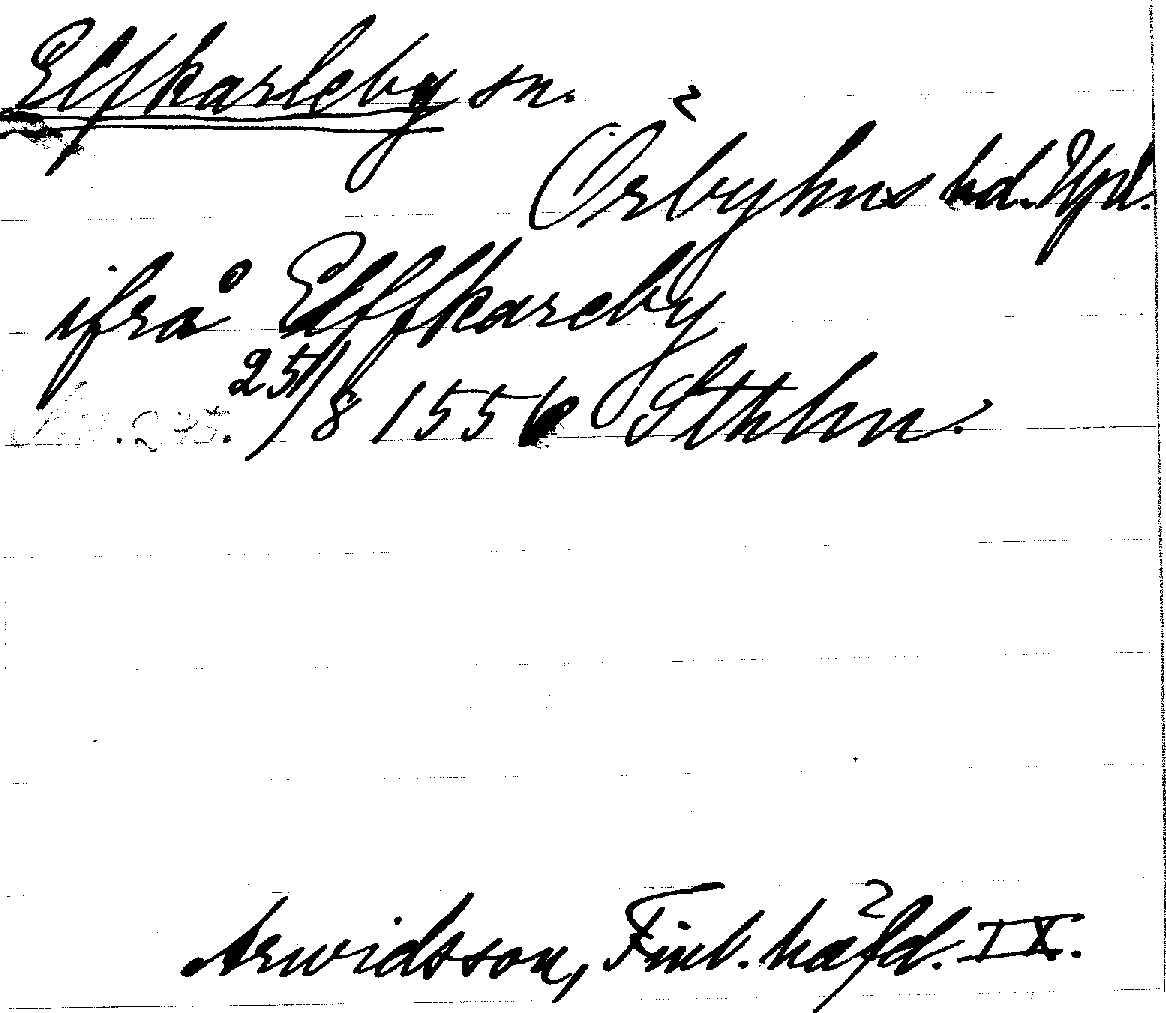 Elfkarleby sn.
Örbyhus hd. Upl.
ifrå Elffkareby
25/8 1556 Sthlm.
Arwidsson, Finl. häfd. IX.